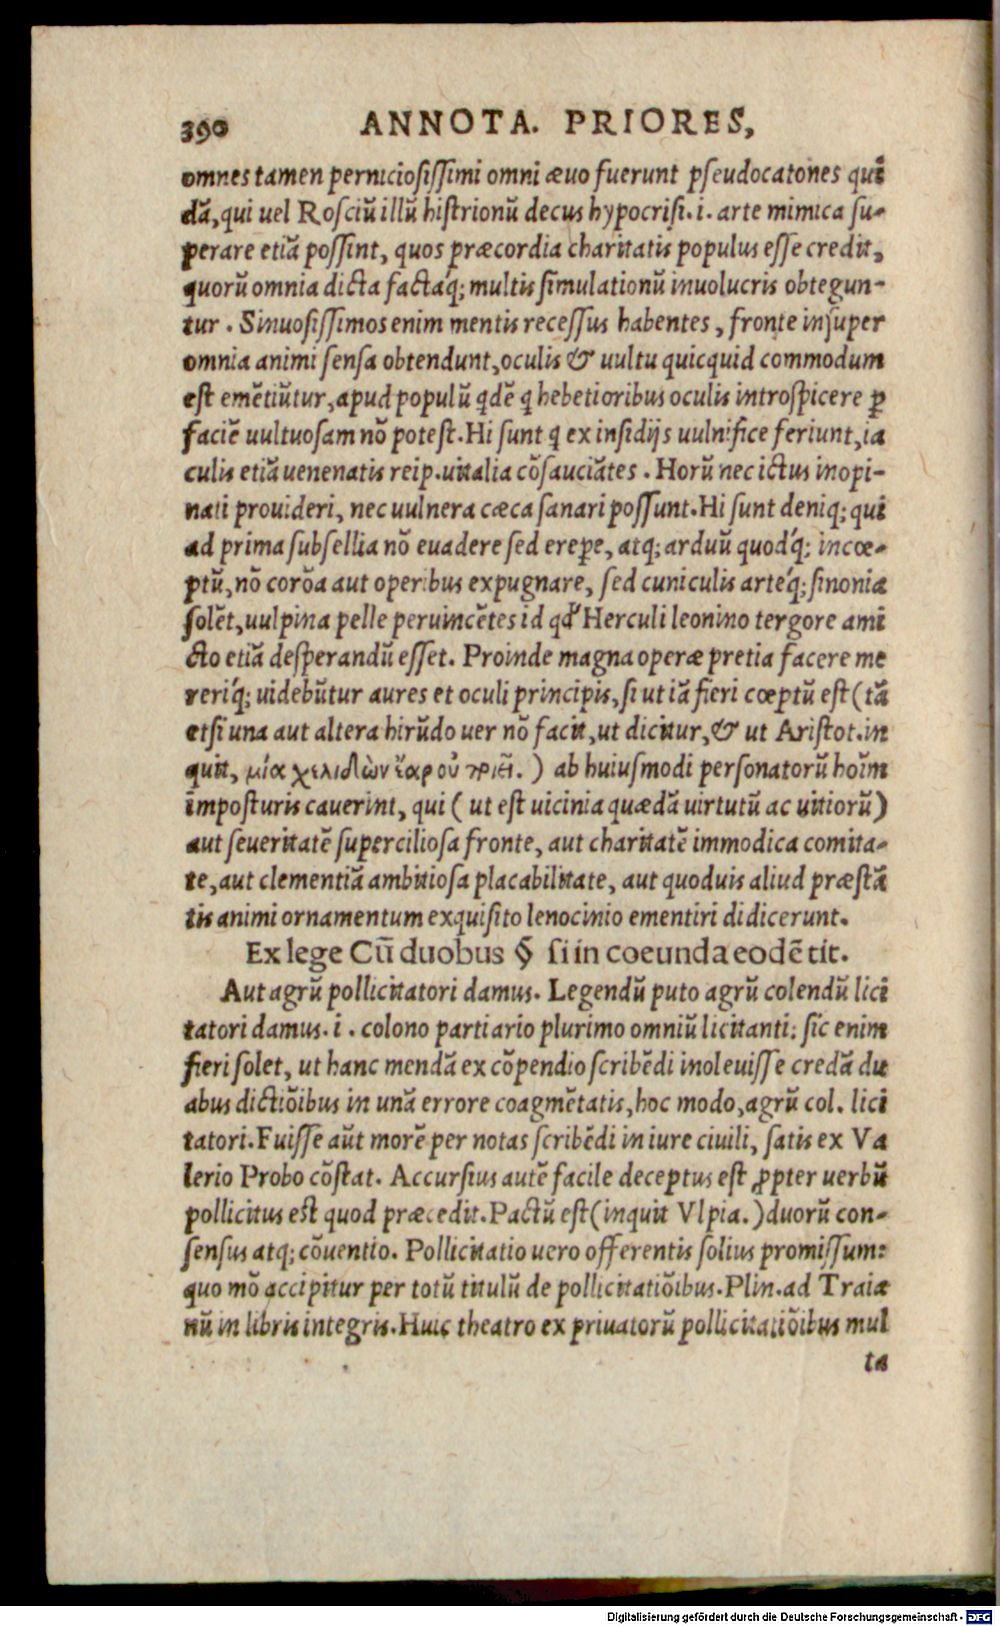 390 ANNOTA. PRIORES,
omnes tamen perniciosissimi omni æuo fuerunt pseudocatones qui
dã, qui uel Rosciũ illũ histrionũ decus hypocrisi. i. arte mimica su-
perare etiã possint, quos præcordia charitatis populus esse credit,
quorũ omnia dicta factaq́; multis simulationũ inuolucris obtegun-
tur. Sinuosissimos enim mentis recessus habentes, fronte insuper
omnia animi sensa obtendunt, oculis & uultu quicquid commodum
est emẽtiũtur, apud populũ qdẽ q hebetioribus oculis introspicere ꝑ
faciẽ uultuosam nõ potest. Hi sunt q ex insidijs uulnifice feriunt, ia
culis etiã uenenatis reip. uitalia cõsauciãtes. Horũ nec ictus inopi-
nati prouideri, nec uulnera cæca sanari possunt. Hi sunt deniq; qui
ad prima subsellia nõ euadere sed ereꝑe, atq; arduũ quodq́; incœ-
ptũ, nõ corõa aut operibus expugnare, sed cuniculis arteq́; sinonia
solẽt, uulpina pelle peruincẽtes id qđ Herculi leonino tergore ami
cto etiã desperandũ esset. Proinde magna operæ pretia facere me
reriq́; uidebũtur aures et oculi principis, si ut iã fieri cœptũ est (tã
etsi una aut altera hirũdo uer nõ facit, ut dicitur, & ut Aristot. in
quit, μία χελιδὼν ἔαρ οὐ ποιεῖ.) ab huiusmodi personatorũ hoĩm
imposturis cauerint, qui (ut est uicinia quædã uirtutũ ac uitiorũ)
aut seueritatẽ superciliosa fronte, aut charitatẽ immodica comita-
te, aut clementiã ambitiosa placabilitate, aut quoduis aliud præstã
tis animi ornamentum exquisito lenocinio ementiri didicerunt.
Ex lege Cũ duobus § si in coeunda eodẽ tit.
Aut agrũ pollicitatori damus. Legendũ puto agrũ colendũ lici
tatori damus. i. colono partiario plurimo omniũ licitanti: sic enim
fieri solet, ut hanc mendã ex cõpendio scribẽdi inoleuisse credã du
abus dictiõibus in unã errore coagmẽtatis, hoc modo, agrũ col. lici
tatori. Fuisse aũt morẽ per notas scribẽdi in iure ciuili, satis ex Va
lerio Probo cõstat. Accursius autẽ facile deceptus est ꝓpter uerbũ
pollicitus est quod præcedit. Pactũ est (inquit Vlpia.) duorũ con-
sensus atq; cõuentio. Pollicitatio uero offerentis solius promissum:
quo mõ accipitur per totũ titulũ de pollicitatiõibus. Plin. ad Traia
nũ in libris integris. Huic theatro ex priuatorũ pollicitatiõibus mul
ta
Digitalisierung gefördert durch die Deutsche Forschungsgemeinschaft - DFG